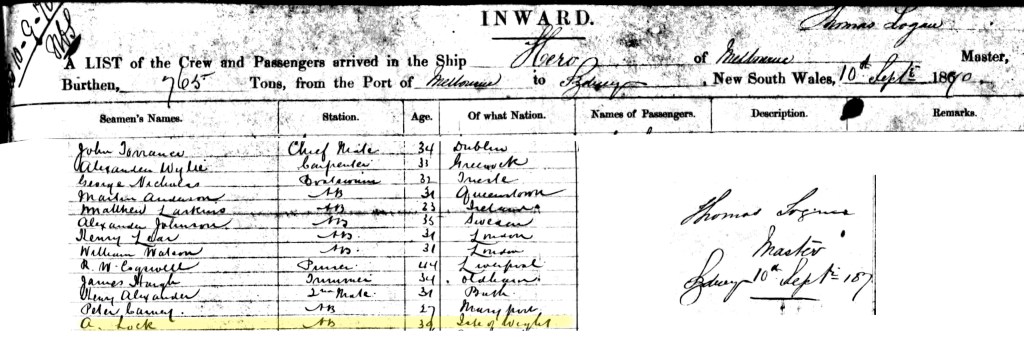 10-9-70
INWARD.
Thomas Logan
A LIST of the Crew and Passengers arrived in the Ship Hero of Melbourne Master,
Burthen, 765 Tons, from the Port of Melbourne to Sydney, New South Wales, 10th Septr 1870
Seamen's Names. Station. Age. Of what Nation. Names of Passengers. Description. Remarks.
John Torrance Chief Mate 34 Dublin
Alexander Wylie Carpenter 33 Greenock
George Nicholas Boatswain 32 Trieste
Martin Anderson AB 31 Queenstown
Matthew Larkins AB 23 Ireland
Alexander Johnson AB 35 Sweden
Henry Lear AB 31 London
William Watson AB. 31 London
R. W. Cogswell Purser 44 Liverpool
James Haugh Trimmer 34 Oldham
Henry Alexander 2nd Mate 31 Bath
Peter Carney 27 Maryport
A. Lock AB 39 Isle of Wight
Thomas Logan
Master
Sydney 10th Septr 187